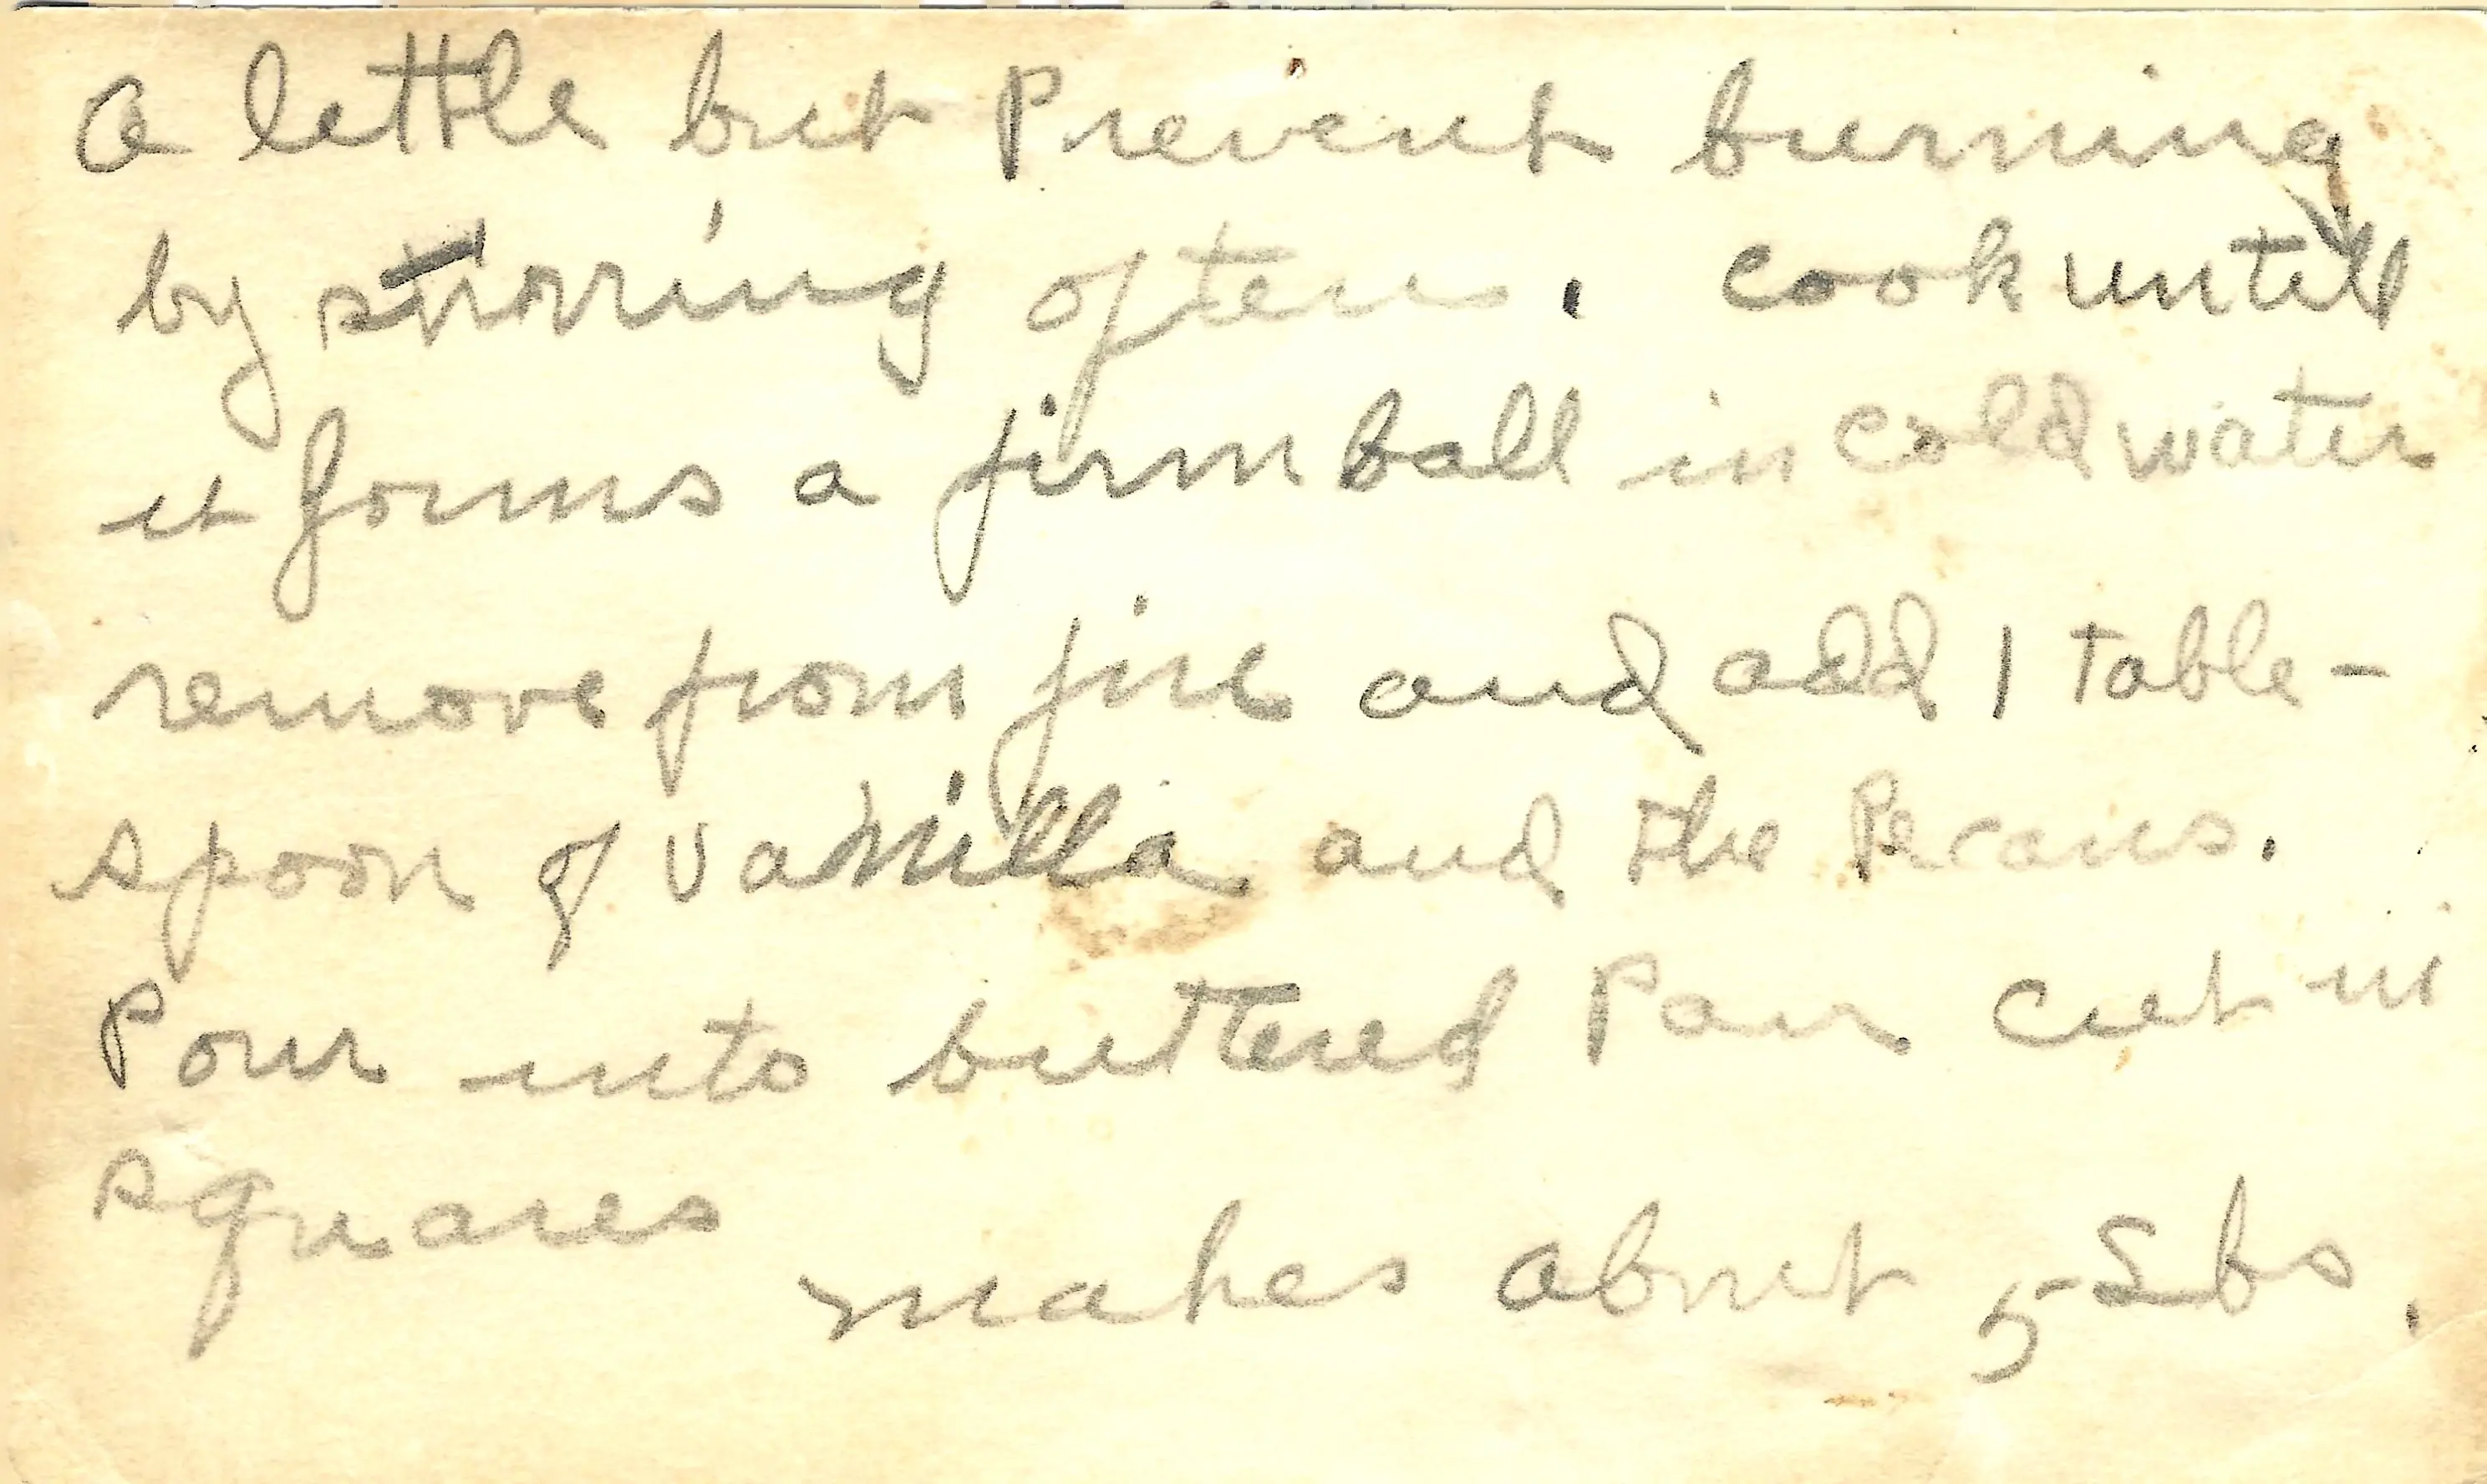 a little but Prevent burning
by stirring often. Cook until
it forms a firm ball in cold water
remove from fire and add 1 table-
spoon of vanilla and the Pecans.
Pour into buttered Pan cut in
squares
makes about 5 Lbs.